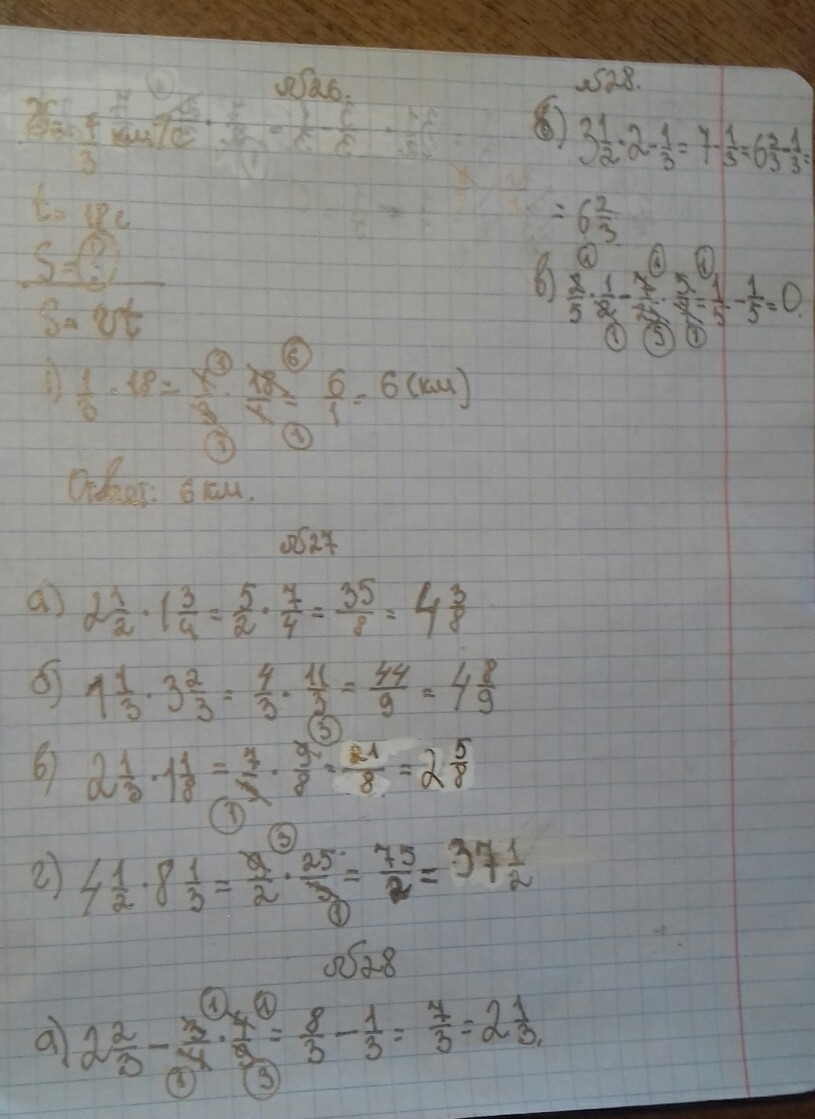 №26.
v = 1/3 км/с
t = 18с
S = ?
S = vt
1) 1/3 · 18 = 1/3 · 18/1 = 6/1 = 6 (км)
Ответ: 6 км.
№27
а) 2 1/2 · 1 3/4 = 5/2 · 7/4 = 35/8 = 4 3/8
б) 1 1/3 · 3 2/3 = 4/3 · 11/3 = 44/9 = 4 8/9
в) 2 1/3 · 1 1/8 = 7/3 · 9/8 = 21/8 = 2 5/8
г) 4 1/2 · 8 1/3 = 9/2 · 25/3 = 75/2 = 37 1/2
№28
а) 2 2/3 - 3/4 · 4/9 = 8/3 - 1/3 = 7/3 = 2 1/3.
№28.
б) 3 1/2 · 2 - 1/3 = 7 - 1/3 = 6 3/3 - 1/3 =
= 6 2/3
в) 2/5 · 1/2 - 7/25 · 5/7 = 1/5 - 1/5 = 0.